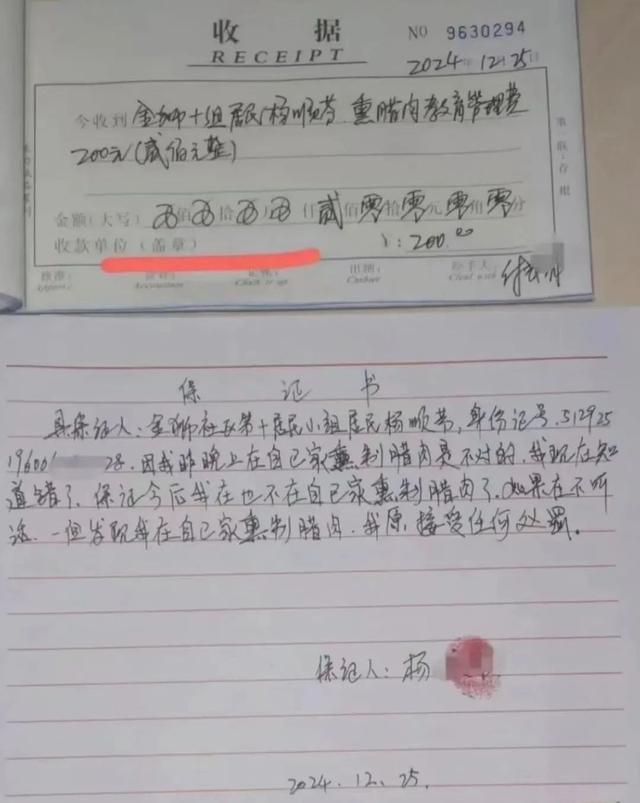 收 据
RECEIPT
NO 9630294
2024年12月25日
今收到 金狮十组居民杨顺芬 熏腊肉教育管理费
200元(贰佰元整)
金额(大写) 佰 拾 万 仟 贰佰零拾零元零角零分
收款单位(盖章)
¥:200.00
核准:
会计:
记账:
出纳:
经手人:
Approve
Accountant
Cashier
第一联:存根
保 证 书
具保证人:金狮社区第十居民小组居民杨顺芬,身份证号.512925
19600 28.因我昨晚上在自己家熏制腊肉是不对的,我现在知
道错了.保证今后我在也不在自己家熏制腊肉了.如果在不听
话.一但发现我在自己家熏制腊肉.我原.接受任何处罢。
保证人:杨
2024.12.25.